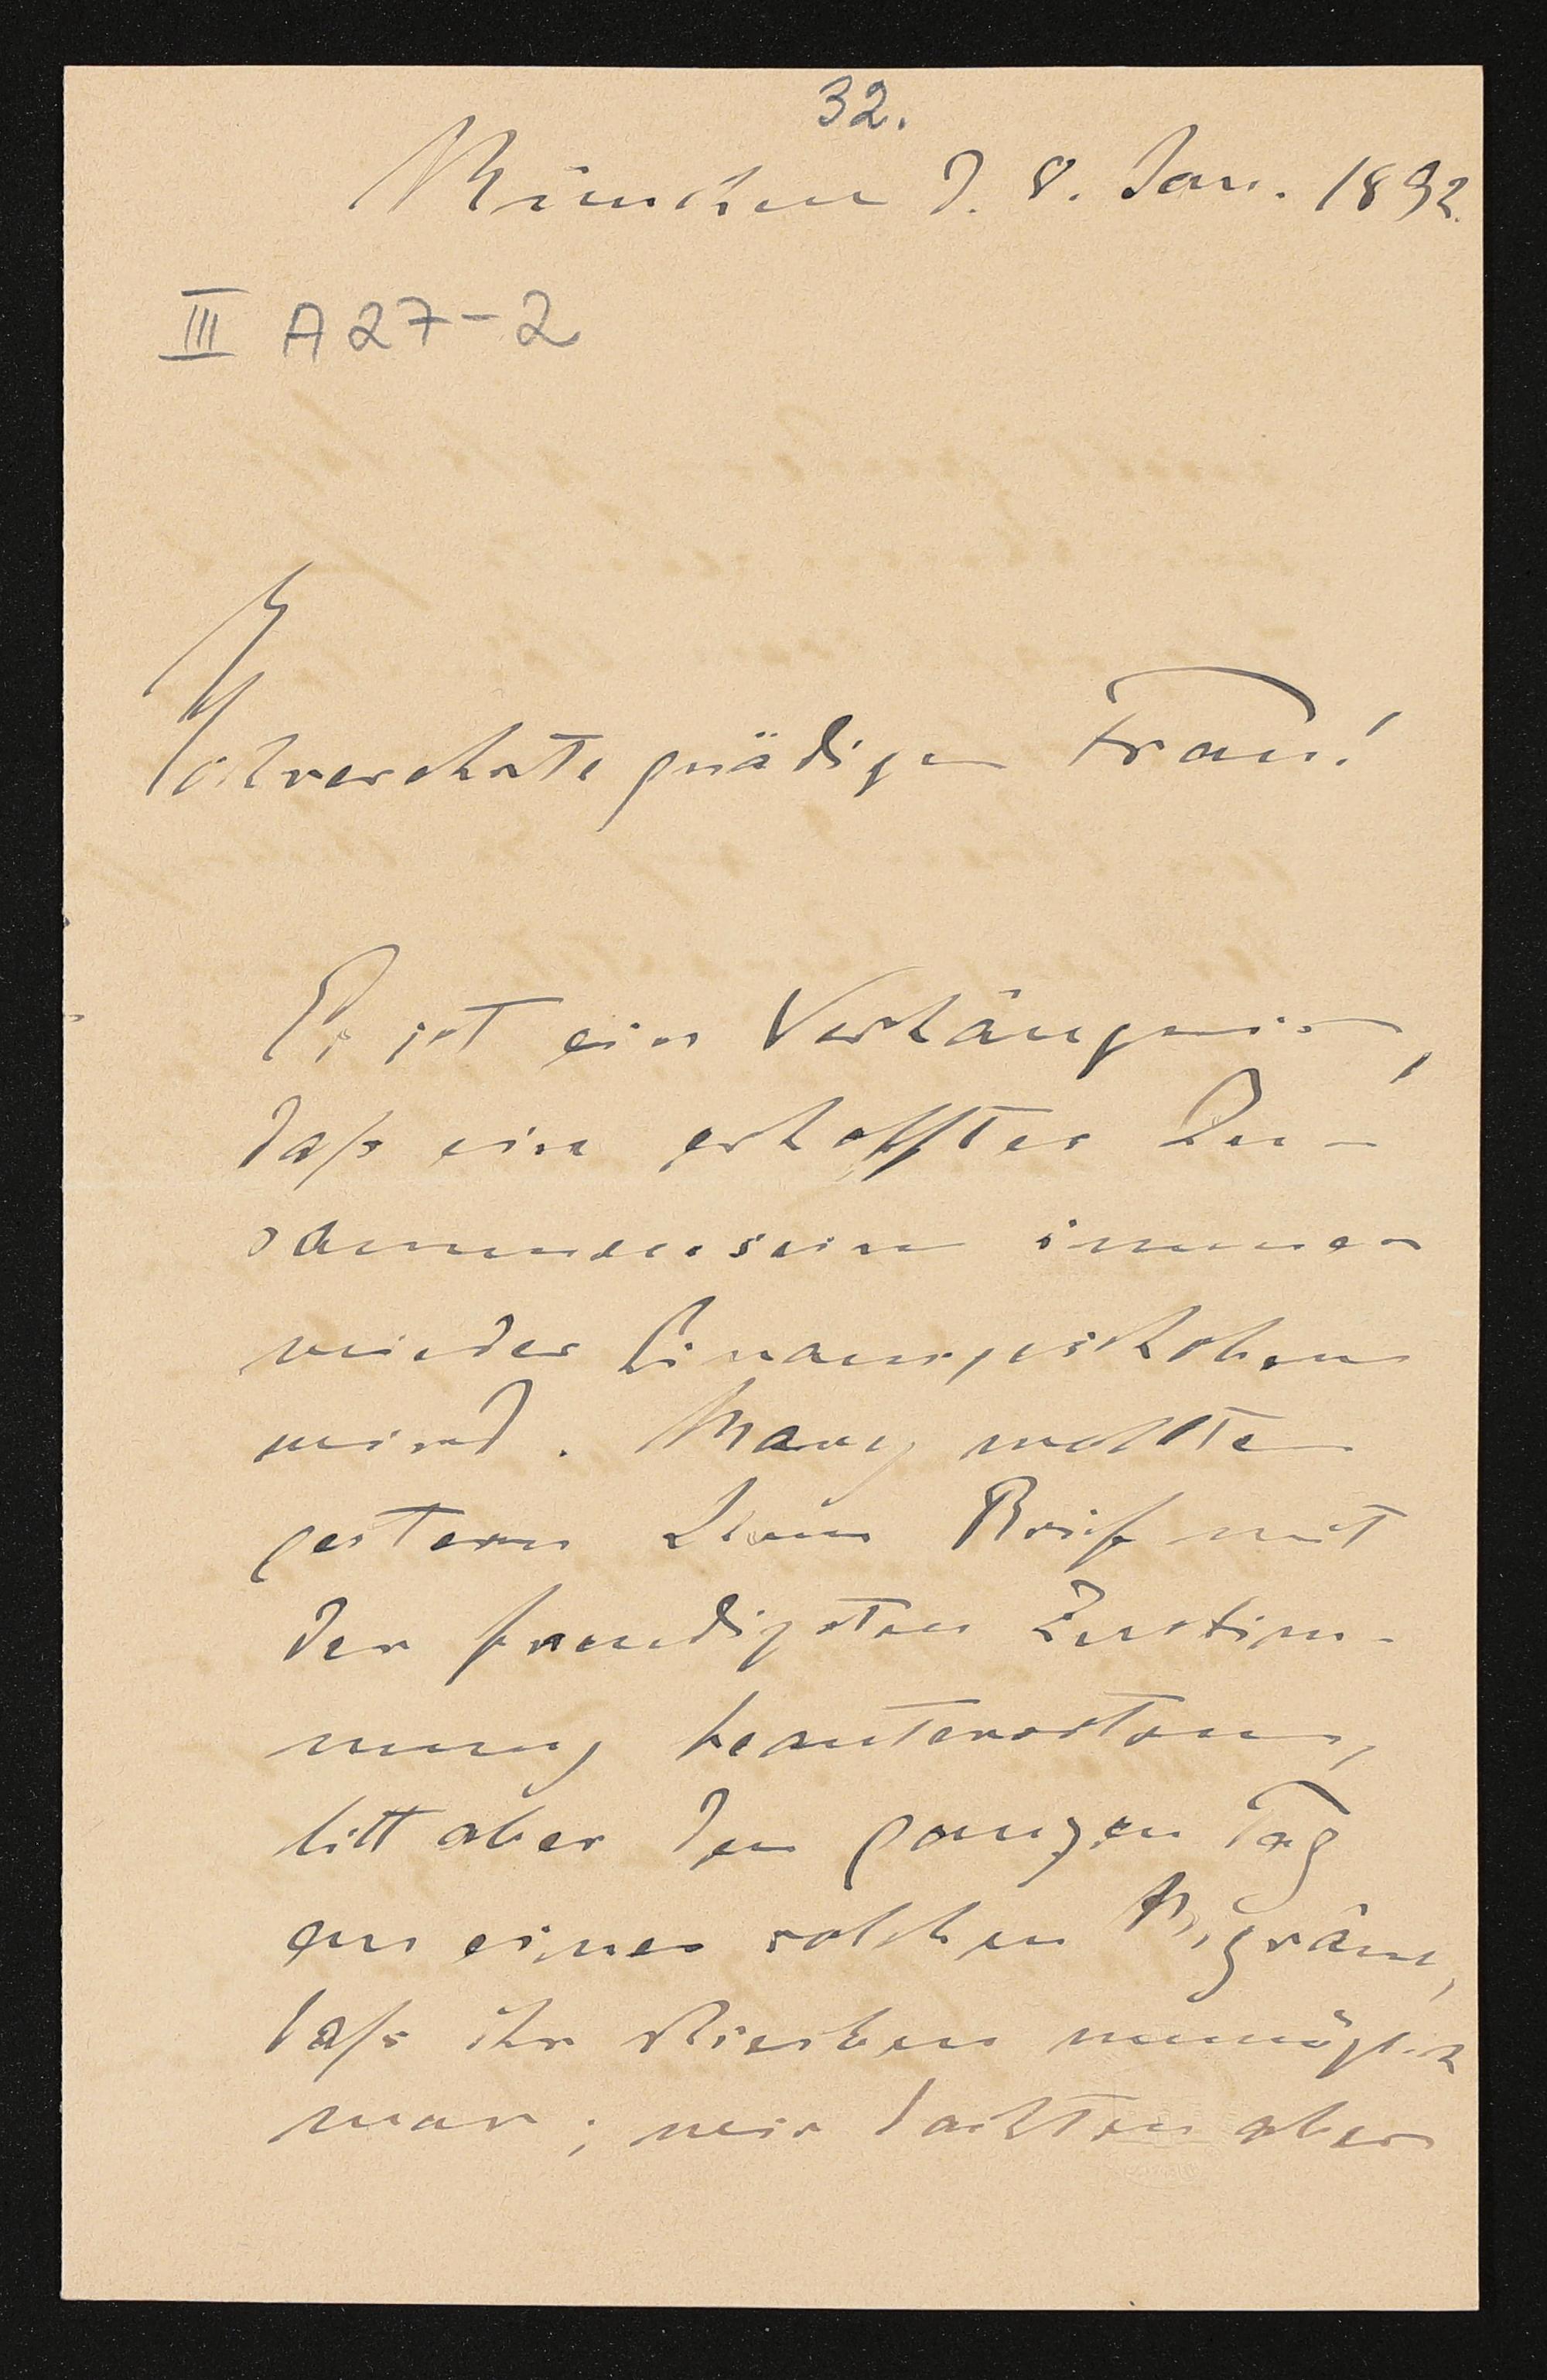 32.
München d. 8. Jan. 1892.
III A27-2
Hochverehrte gnädige Frau!
Es ist ein Verhängnis,
daß ein erhofftes Zu-
sammensein immer
wieder hinausgeschoben
wird. Mary wollte
gestern Ihren Brief mit
der freudigsten Zustim-
mung beantworten,
litt aber den ganzen Tag
an einer solchen Migräne,
daß ihr Schreiben unmöglich
war; wir dachten aber